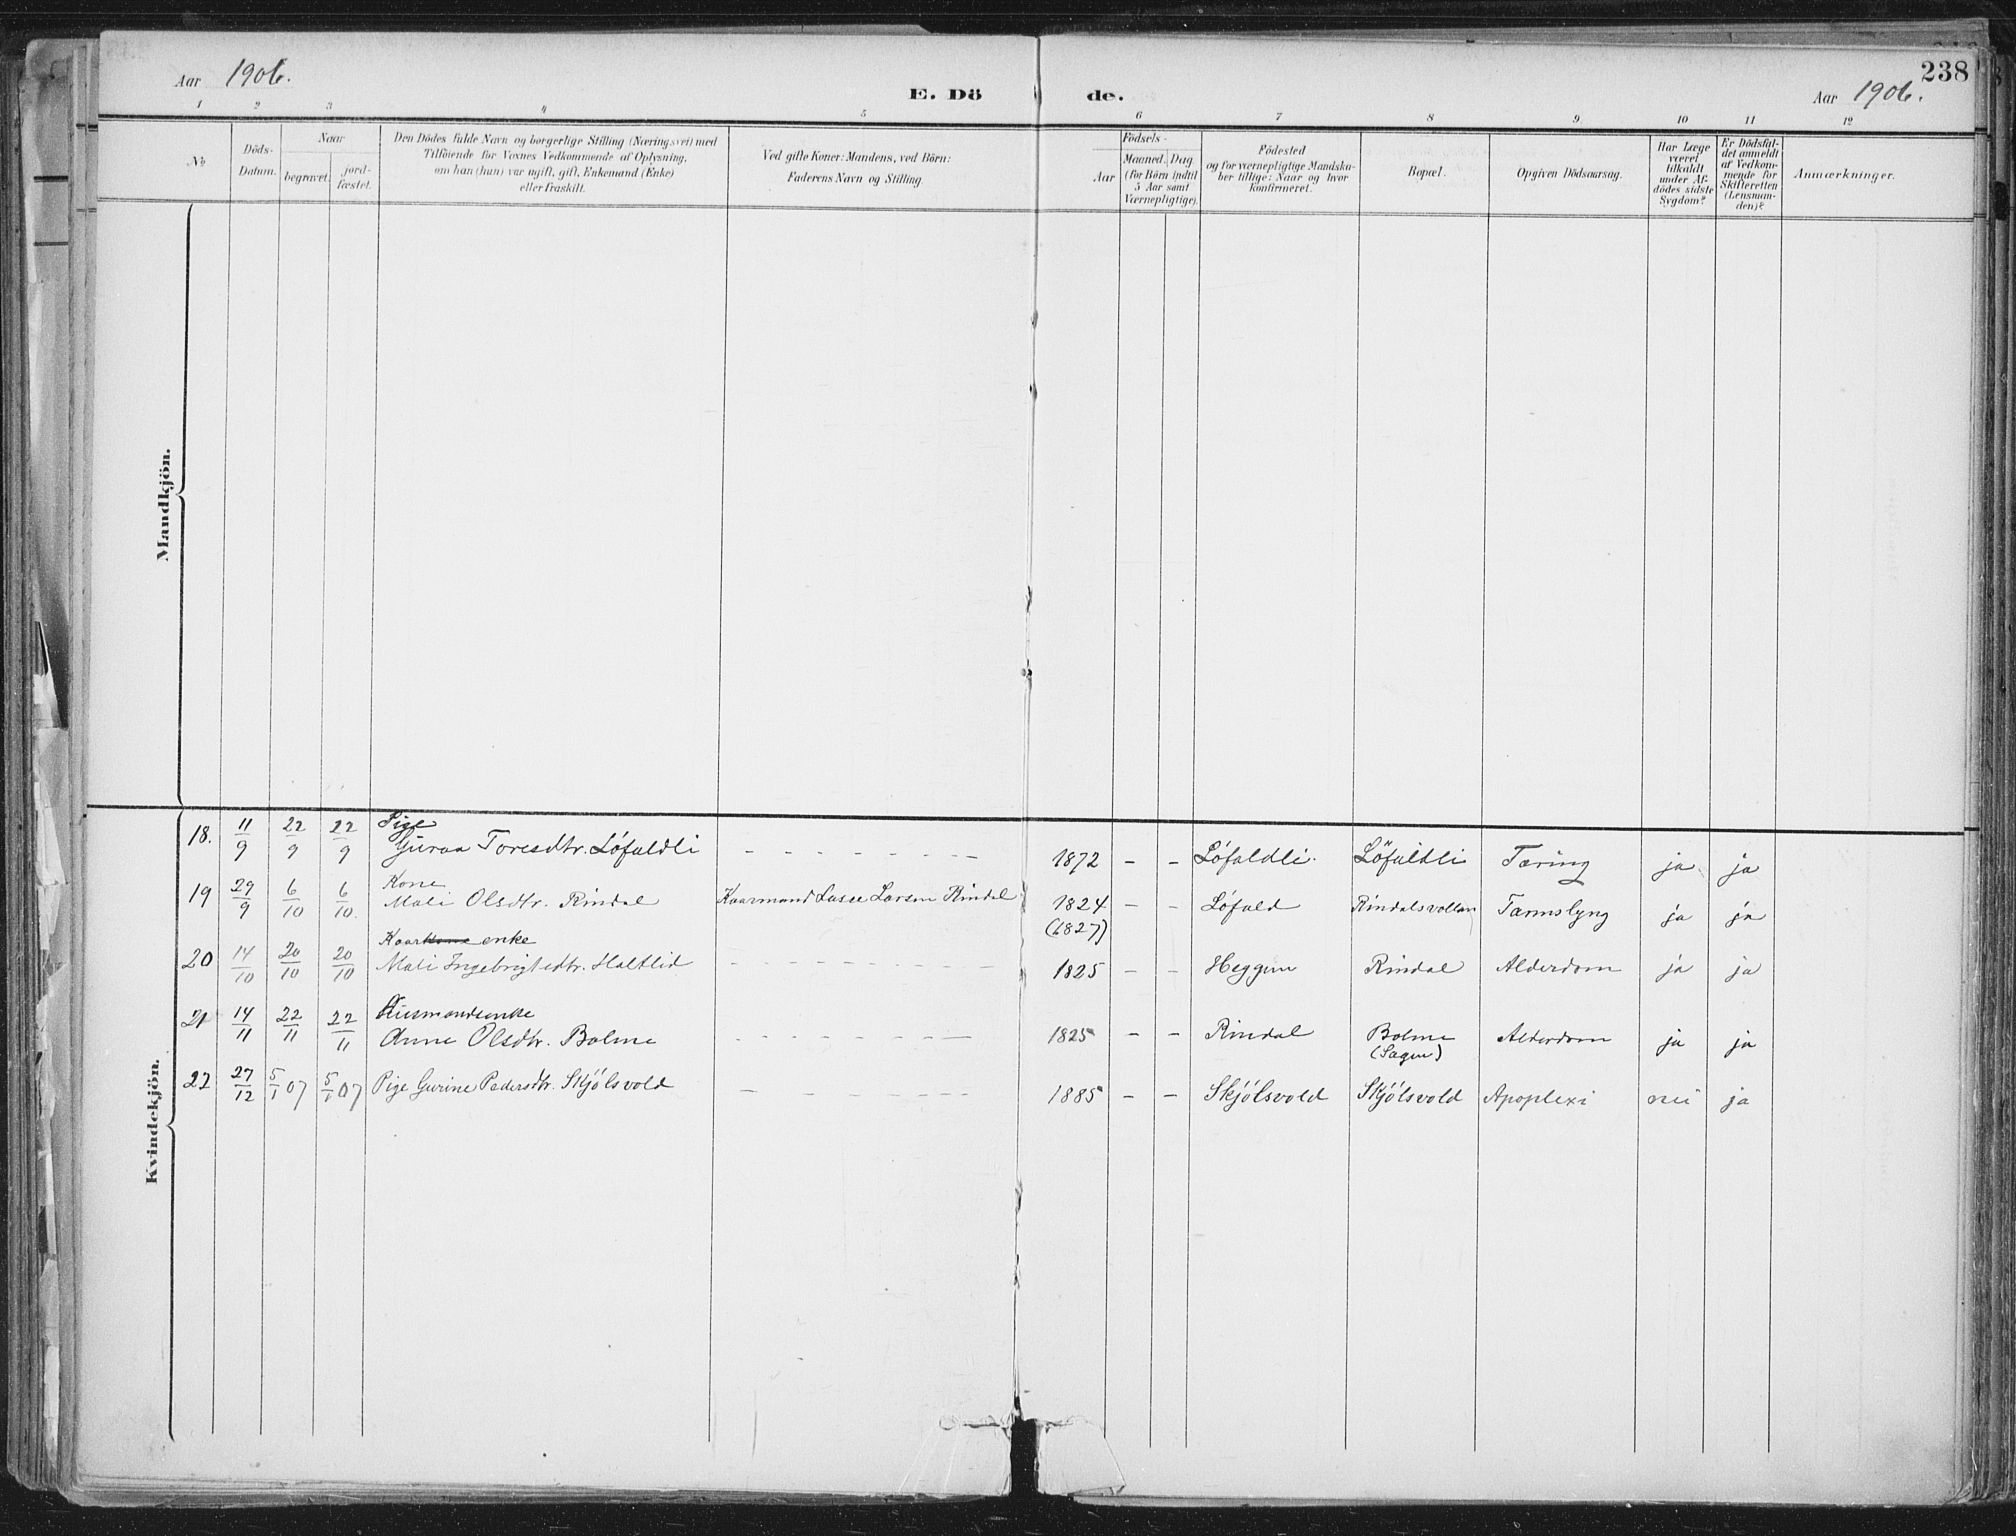 238
Aar 1906.
E. Dö de.
Aar 1906.
1 2 3 4 5 6 7 8 9 10 11 12
No
Döds-
Datum.
Naar
begravet.
jord-
fæstet.
Den Dödes fulde Navn og borgerlige Stilling (Næringsvei) med
Tilföiende for Voxnes Vedkommende af Oplysning,
om han (hun) var ugift, gift, Enkemand (Enke)
eller fraskilt.
Ved gifte Koner: Mandens, ved Börn:
Faderens Navn og Stilling.
Födsels-
Aar
Maaned. Dag.
(for Börn indtil
5 Aar samt
Værnepligtige).
Födested
og for værnepligtige Mandska-
ber tillige: Naar og hvor
konfirmeret.
Bopæl.
Opgiven Dödsaarsag.
Har Læge
været
tilkaldt
under Af-
dödes sidste
Sygdom?
Er Dödsfal-
det anmeldt
af Vedkom-
mende for
Skifteretten
(Lensman-
den)?
Anmærkninger.
Mandkjön.
Kvindekjön.
Pige
18. 11/9 22/9 22/9 Guraa Toresdtr. Løfaldli - - - - - - - - 1872 - - Løfaldli. Løfaldli Tæring ja ja
Kone
19 29/9 6/10 6/10. Mali Olsdtr. Rindal Kaarmand Lasse Larsen Rindal 1824 - - Løfald Rindalsvollan Tarmslyng ja ja
(1827)
Kaarkone enke
20 14/10 20/10 20/10 Mali Ingebrigtsdtr. Haltlid - - - - - - - - 1825 - - Heggem Rindal Alderdom ja ja
Husmandsenke
21 14/11 22/11 22/11 Anne Olsdtr. Bolme - - - - - - - - 1825 - - Rindal Bolme Alderdom ja ja
(Sagen)
22 27/12 5/1 07 5/1 07 Pige Gurine Pedersdtr. Skjølsvold - - - - - - - - 1885 - - Skjølsvold Skjølsvold Apoplexi nei ja